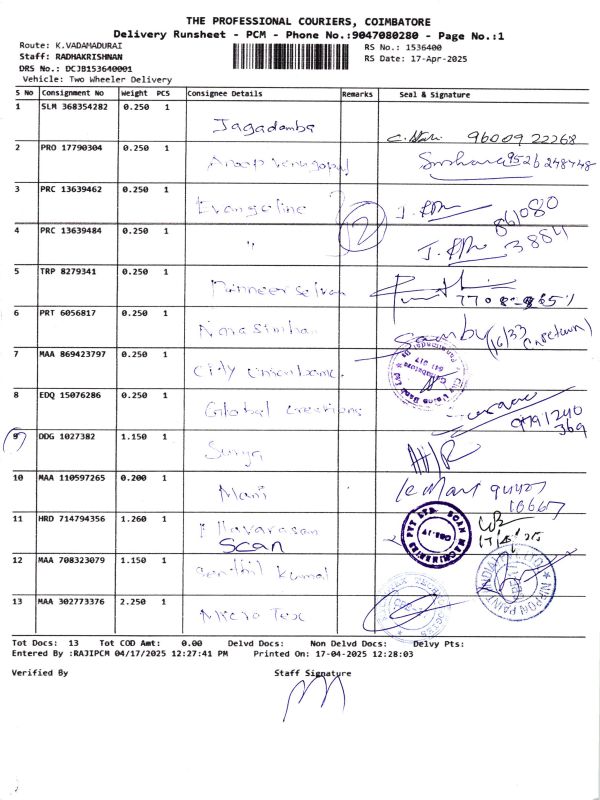 THE PROFESSIONAL COURIERS, COIMBATORE
Delivery Runsheet - PCM - Phone No.:9047080280 - Page No.:1
Route: K.VADAMADURAI
RS No.: 1536400
Staff: RADHAKRISHNAN
RS Date: 17-Apr-2025
DRS No.: DCJB153640001
Vehicle: Two Wheeler Delivery
S No Consignment No Weight PCS Consignee Details Remarks Seal & Signature
1 SLM 368354282 0.250 1 Jagadamba 96009 22268
2 PRO 17790304 0.250 1 Anoop Venugopal 9526248748
3 PRC 13639462 0.250 1 Evangeline 861080
4 PRC 13639484 0.250 1 " 2 3884
5 TRP 8279341 0.250 1 Panneer selvam
6 PRT 6056817 0.250 1 Narasimhan
7 MAA 869423797 0.250 1 City
8 EDQ 15076286 0.250 1 Global creations 9791240 369
9 DDG 1027382 1.150 1 Surya
10 MAA 110597265 0.200 1 Mani
11 HRD 714794356 1.260 1 Ilavarasan
Scan
SCAN MACHINERIES PVT LTD.
12 MAA 708323079 1.150 1 Senthil Kumar
NIPPON PAINT
13 MAA 302773376 2.250 1 Micro Tex
Tot Docs: 13 Tot COD Amt: 0.00 Delvd Docs: Non Delvd Docs: Delvy Pts:
Entered By :RAJIPCM 04/17/2025 12:27:41 PM Printed On: 17-04-2025 12:28:03
Verified By Staff Signature